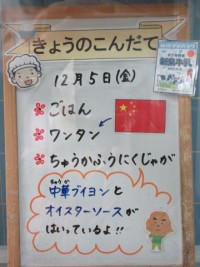 きょうのこんだて
12月5日(金)
ごはん
ワンタン
ちゅうかふうにくじゃが
ちゅうか
中華ブイヨンと
オイスターソースが
はいっているよ!!